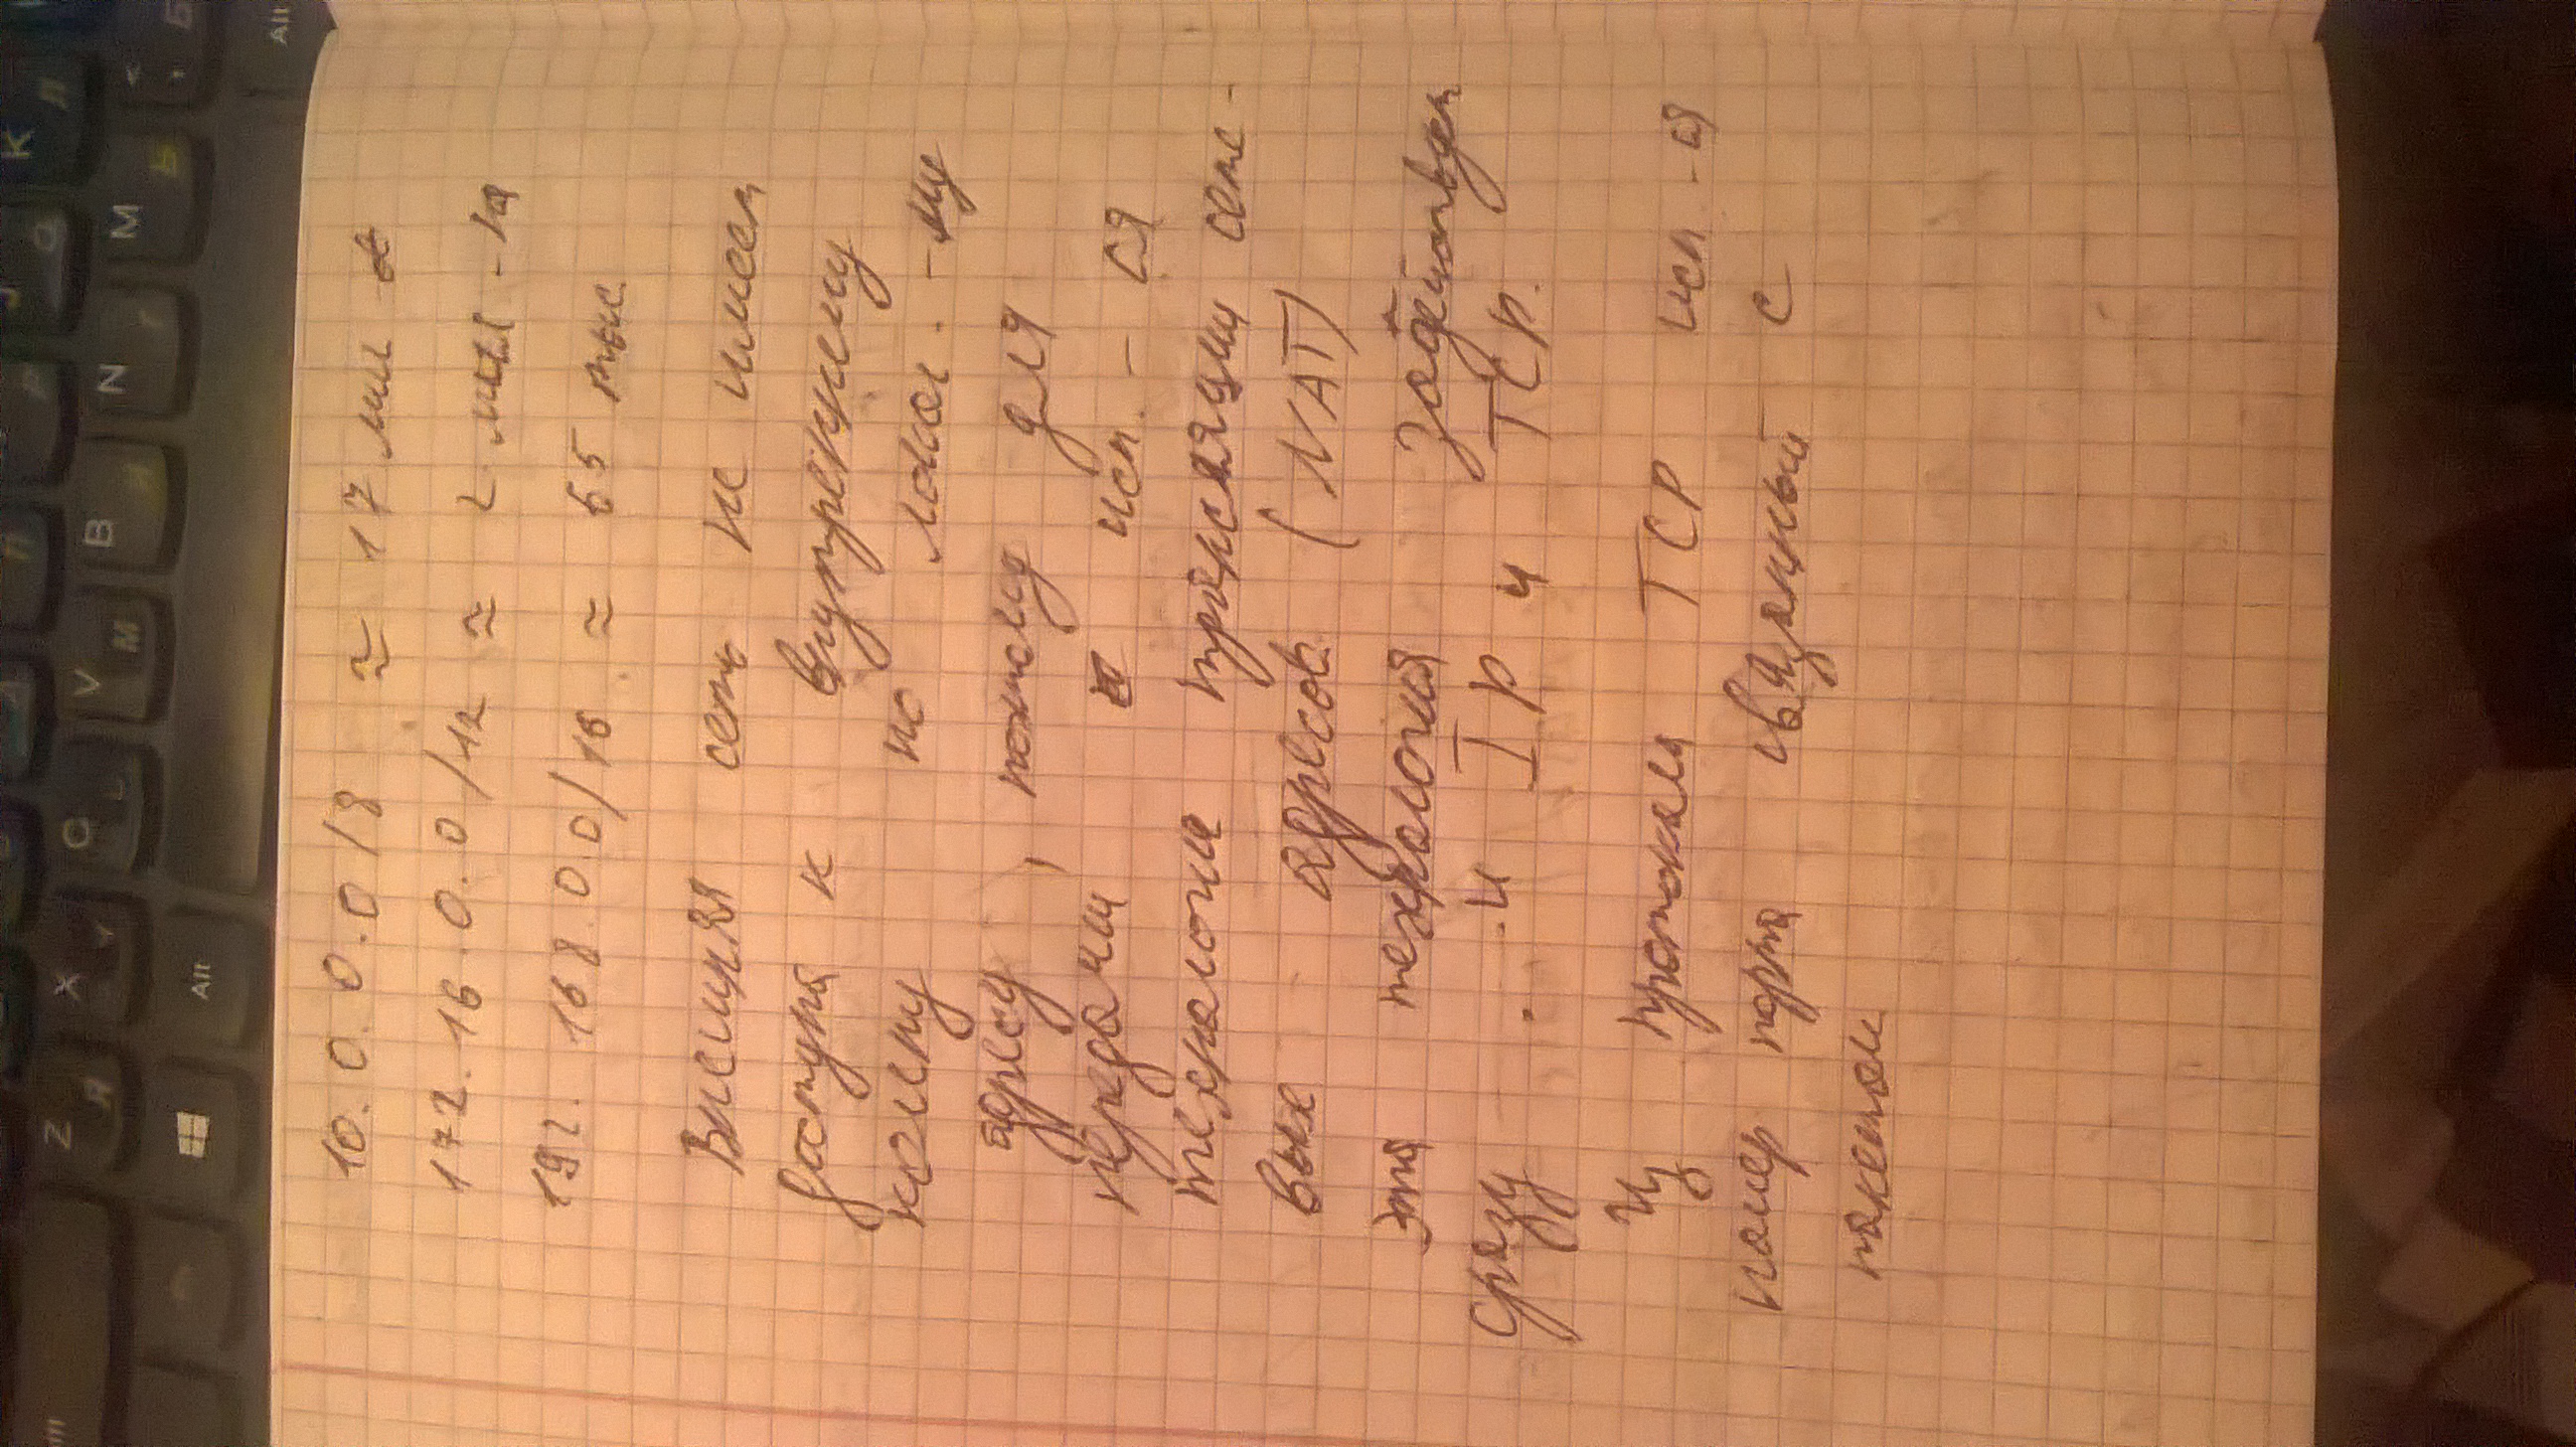 Z Я X C V М B И N Т M Ь K Л Б
Alt
Alt
10.0.0.0/8 ≈ 17 млн
172.16.0.0/12 ≈ 2 млн -на
192.168.0.0/16 ≈ 65 тыс.
Внешняя сеть не имеет
доступа к внутреннему
компу по локал. -му
адресу, поэтому для
передачи исп. - ся
технология трансляции сете-
вых адресов (NAT)
Эта технология задействует
сразу и IP и TCP.
Из протокола TCP исп.-ся
номер порта связанный с
пакетом